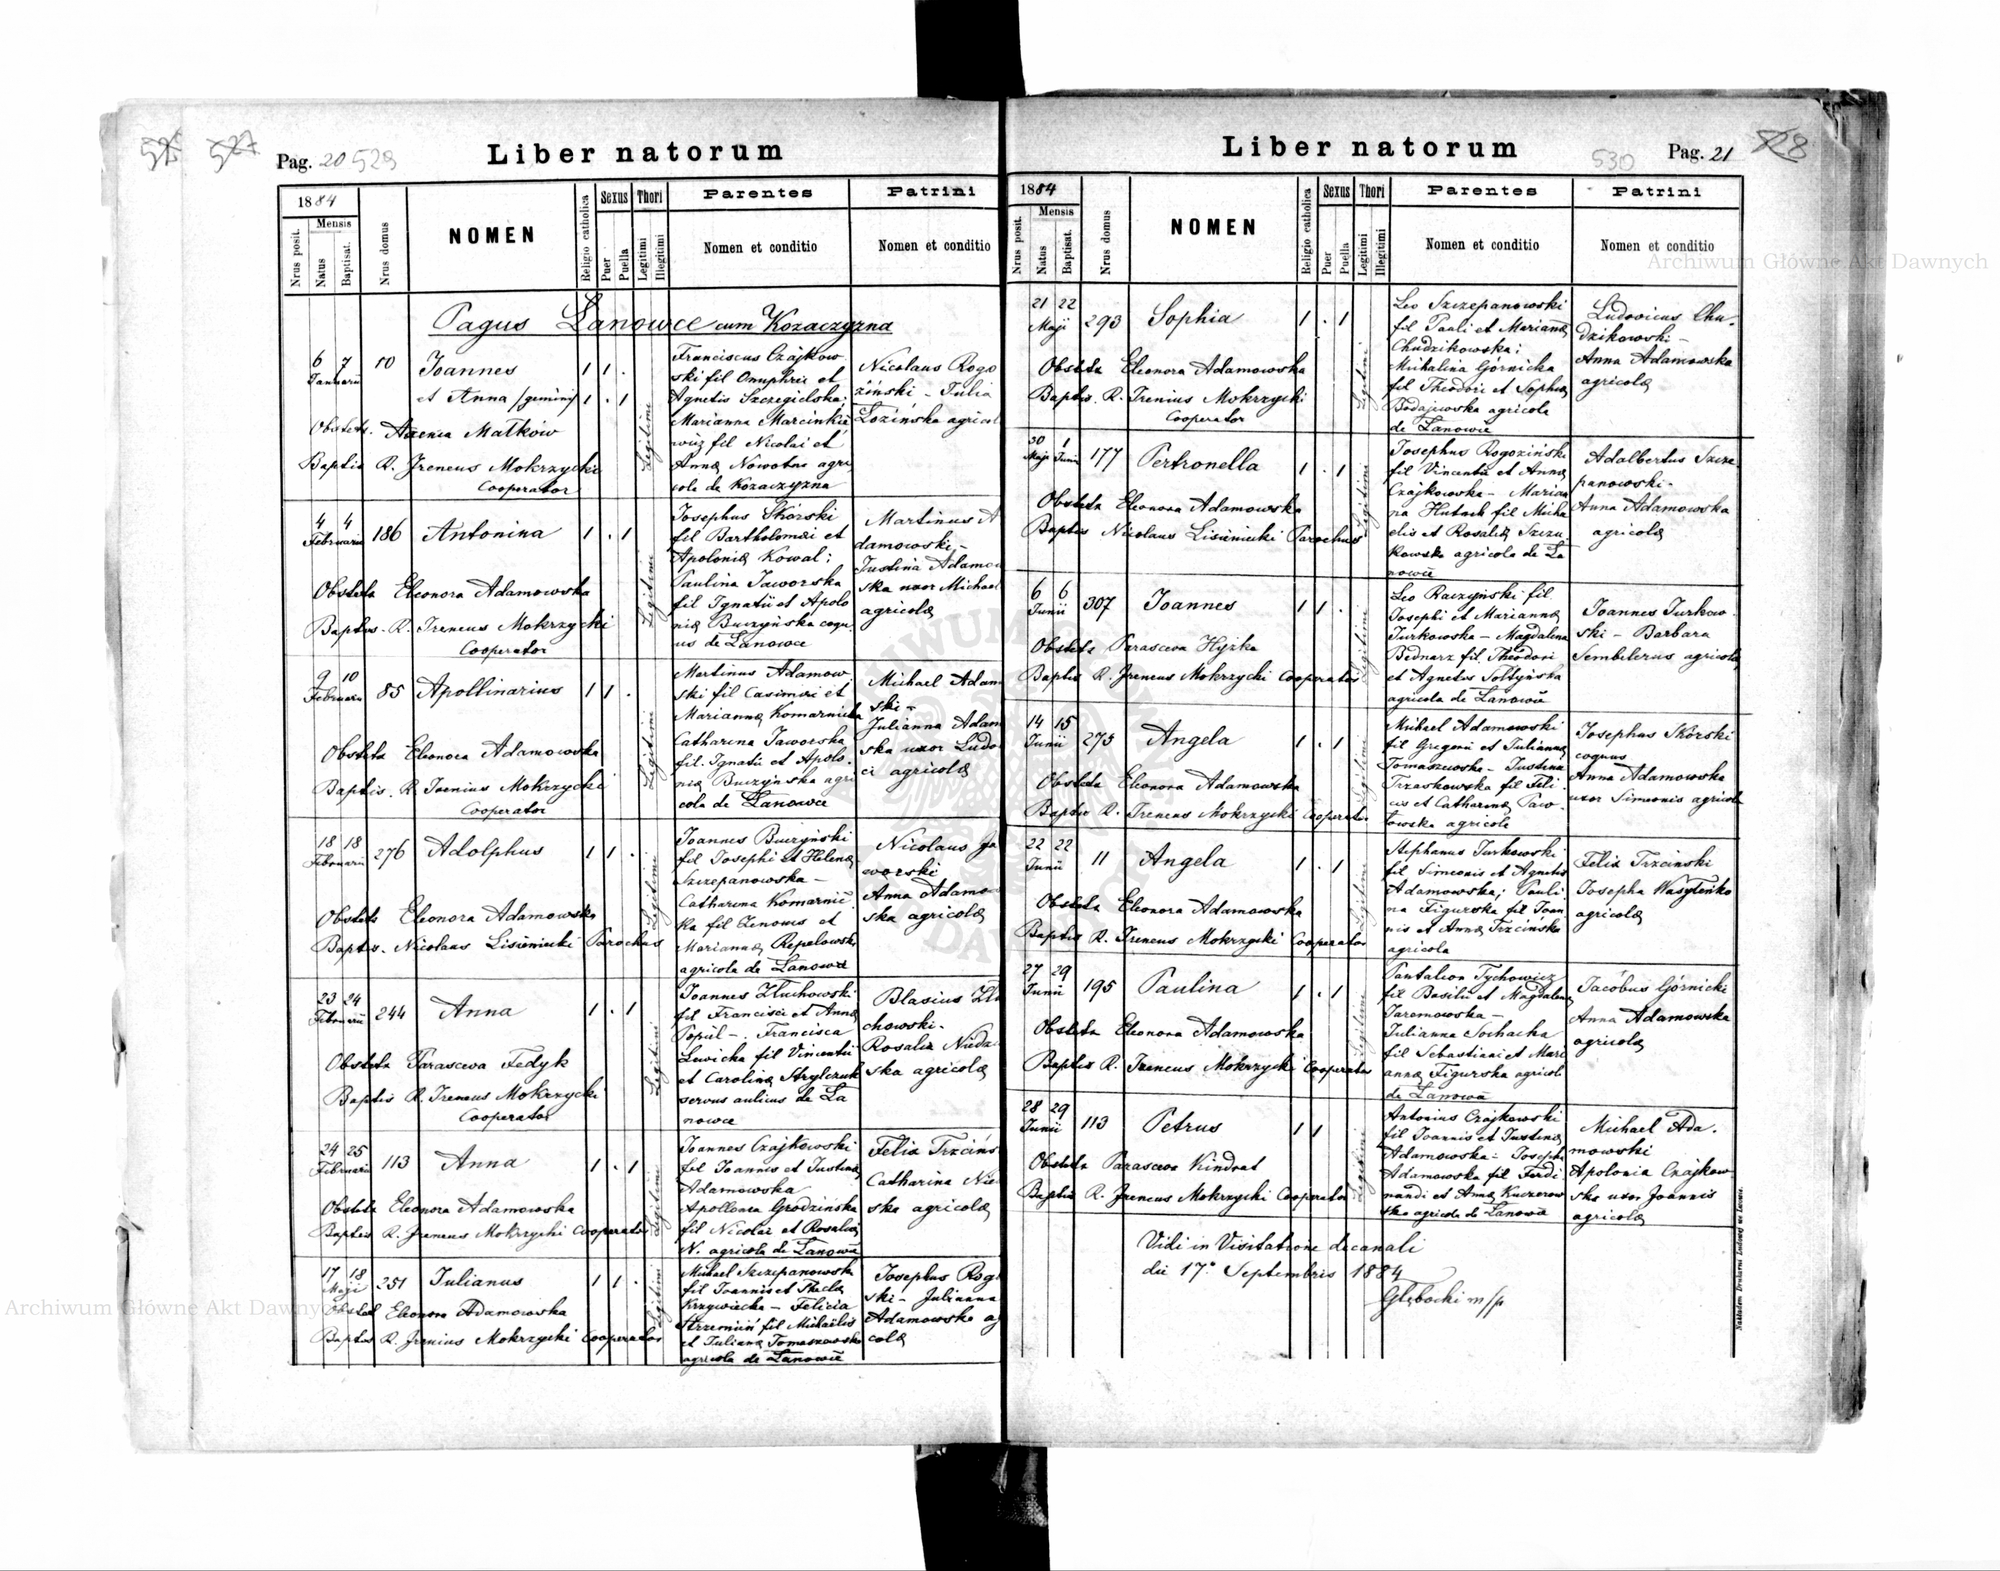 525 527
Pag. 20 529
Liber natorum
1884
Mensis
Nrus posit.
Natus
Baptisat.
Nrus domus
NOMEN
Religio catholica
Sexus
Puer
Puella
Thori
Legitimi
Illegitimi
Parentes
Nomen et conditio
Patrini
Nomen et conditio
Pagus Łanowce cum Kozaczyzna
6 7 Januarii 10 Joannes 1 1 .
et Anna /gemini/ 1 . 1
Obstetr. Axenia Małków
Baptis R. Ireneus Mokrzycki
Cooperator
Legitimi
Franciscus Czajkow
ski fil Onuphrii et
Agnetis Szczegielska;
Marianna Marcinkie
wicz fil Nicolai et
Annæ Nowotna agri
cola de Kozaczyzna
Nicolaus Rogo
ziński – Julia
Łozińska agricol
4 4 Februarii 186 Antonina 1 . 1
Obsteta Eleonora Adamowska
Baptis. R. Ireneus Mokrzycki
Cooperator
Legitimi
Josephus Skórski
fil Bartholomæi et
Apoloniæ Kowal;
Paulina Jaworska
fil Ignatii et Apolo
niæ Buczyńska coqu
us de Łanowce
Martinus A
damowski –
Justina Adamow
ska uxor Michael
agricolæ
9 10 Februarii 85 Apollinarius 1 1 .
Obsteta Eleonora Adamowska
Baptis. R. Irenius Mokrzycki
Cooperator
Legitimi
Martinus Adamow
ski fil Casimiri et
Mariannæ Komarnicka
Catharina Jaworska
fil. Ignatii et Apolo
niæ Buczyńska agri
cola de Łanowce
Michael Adam
ski –
Julianna Adam
ska uxor Ludo
ci agricolæ
18 18 Februarii 276 Adolphus 1 1 .
Obsteta Eleonora Adamowska
Baptis. Nicolaus Lisieniecki Parochus
Legitimi
Joannes Buczyński
fil Josephi et Helenæ
Szczepanowska –
Catharina Komarnic
ka fil Zenonis et
Mariannæ Repelowska
agricola de Łanowce
Nicolaus Ja
worski
Anna Adamo
ska agricolæ
23 24 Februarii 244 Anna 1 . 1
Obsteta Parasceva Fedyk
Baptis R. Ireneus Mokrzycki
Cooperator
Legitimi
Joannes Kluchowski
fil Francisci et Annæ
Popiul –. Francisca
Lewicka fil Vincentii
et Carolinæ Strylczuk
servus aulicus de Ła
nowce
Blasius
chowski.
Rosalia
ska agricolæ
24 25 Februarii 113 Anna 1 . 1
Obsteta Eleonora Adamowska
Baptis R. Ireneus Mokrzycki Cooperator
Legitimi
Joannes Czajkowski
fil Joannis et Justinæ
Adamowska
Apollonia Grodzińska
fil Nicolai et Rosaliæ
N. agricola de Łanowce
Felix Trzcińs
Catharina Nie
ska agricolæ
17 18 Maji 251 Julianus 1 1 .
Obstet Eleonora Adamowska
Baptis R. Irenius Mokrzycki Cooperator
Legitimi
Michael Szczepanowski
fil Joannis et Theclæ
Krzywiecka – Felicia
Strzemień fil Michaelis
et Julianæ Tomaszewska
agricola de Łanowce
Josephus Rog
ski – Julianna
Adamowska ag
colæ
Liber natorum
530
Pag. 21 528
1884
Mensis
Nrus posit.
Natus
Baptisat.
Nrus domus
NOMEN
Religio catholica
Sexus
Puer
Puella
Thori
Legitimi
Illegitimi
Parentes
Nomen et conditio
Patrini
Nomen et conditio
21 22 Maji 293 Sophia 1 . 1
Obsteta Eleonora Adamowska
Baptis. R. Irenius Mokrzycki
Cooperator
Legitimi
Leo Szczepanowski
fil Pauli et Mariannæ
Chudzikowska;
Michalina Górnicka
fil Theodori et Sophiæ
Bodajewska agricola
de Łanowce
Ludovicus Chu
dzikowski –
Anna Adamowska
agricolæ
30 Maji 1 Junii 177 Pertronella 1 . 1
Obsteta Eleonora Adamowska
Baptis Nicolaus Lisieniecki Parochus
Legitimi
Josephus Rogoziński
fil Vincentii et Annæ
Czajkowska – Marian
na Hutnik fil Micha
elis et Rosaliæ Szczu
kowska agricola de Ła
nowce
Adalbertus Szcze
panowski –
Anna Adamowska
agricolæ
6 6 Junii 307 Joannes 1 1 .
Obsteta Parasceva Hyżka
Baptis R. Ireneus Mokrzycki Cooperator
Legitimi
Leo Raczyński fil
Josephi et Mariannæ
Turkowska – Magdalena
Bednarz fil. Theodori
et Agnetis Sołtyńska
agricola de Łanowce
Joannes Turkow
ski – Barbara
Sembilerus agricolæ
14 15 Junii 275 Angela 1 . 1
Obsteta Eleonora Adamowska
Baptis R. Ireneus Mokrzycki Cooperator
Legitimi
Michael Adamowski
fil Gregorii et Juliannæ
Tomaszewska – Justina
Trzaskowska fil Feli
cis et Catharinæ Paw
łowska agricola
Josephus Skórski
coquus
Anna Adamowska
uxor Simeonis agricolæ
22 22 Junii 11 Angela 1 . 1
Obsteta Eleonora Adamowska
Baptis R. Ireneus Mokrzycki Cooperator
Legitimi
Stephanus Turkowski
fil Simeonis et Agnetis
Adamowska; Pauli
na Figurska fil Joan
nis et Annæ Trzcińska
agricola
Felix Trzcinski
Josepha Wasyleńko
agricolæ
27 29 Junii 195 Paulina 1 . 1
Obsteta Eleonora Adamowska
Baptis R. Ireneus Mokrzycki Cooperator
Legitimi
Pantaleon Tychowicz
fil Basilii et Magdalenæ
Jaremowska –
Julianna Sochacka
fil Sebastiani et Mari
annæ Figurska agricol
de Łanowce
Jacobus Górnicki
Anna Adamowska
agricolæ
28 29 Junii 113 Petrus 1 1
Obsteta Parasceva Kindrat
Baptis R. Ireneus Mokrzycki Cooperator
Legitimi
Antonius Czajkowski
fil Joannis et Justinæ
Adamowska – Josepha
Adamowska fil Ferdi
nandi et Annæ Kuczerow
ska agricola de Łanowce
Michael Ada
mowski
Apolonia Czajkow
ska uxor Joannis
agricolæ
Vidi in Visitatione decanali
die 17ª Septembris 1884
Głębocki m/p
Nakładem Drukarni Ludowej we Lwowie.
Archiwum Główne Akt Dawnych
Archiwum Główne Akt Dawnych